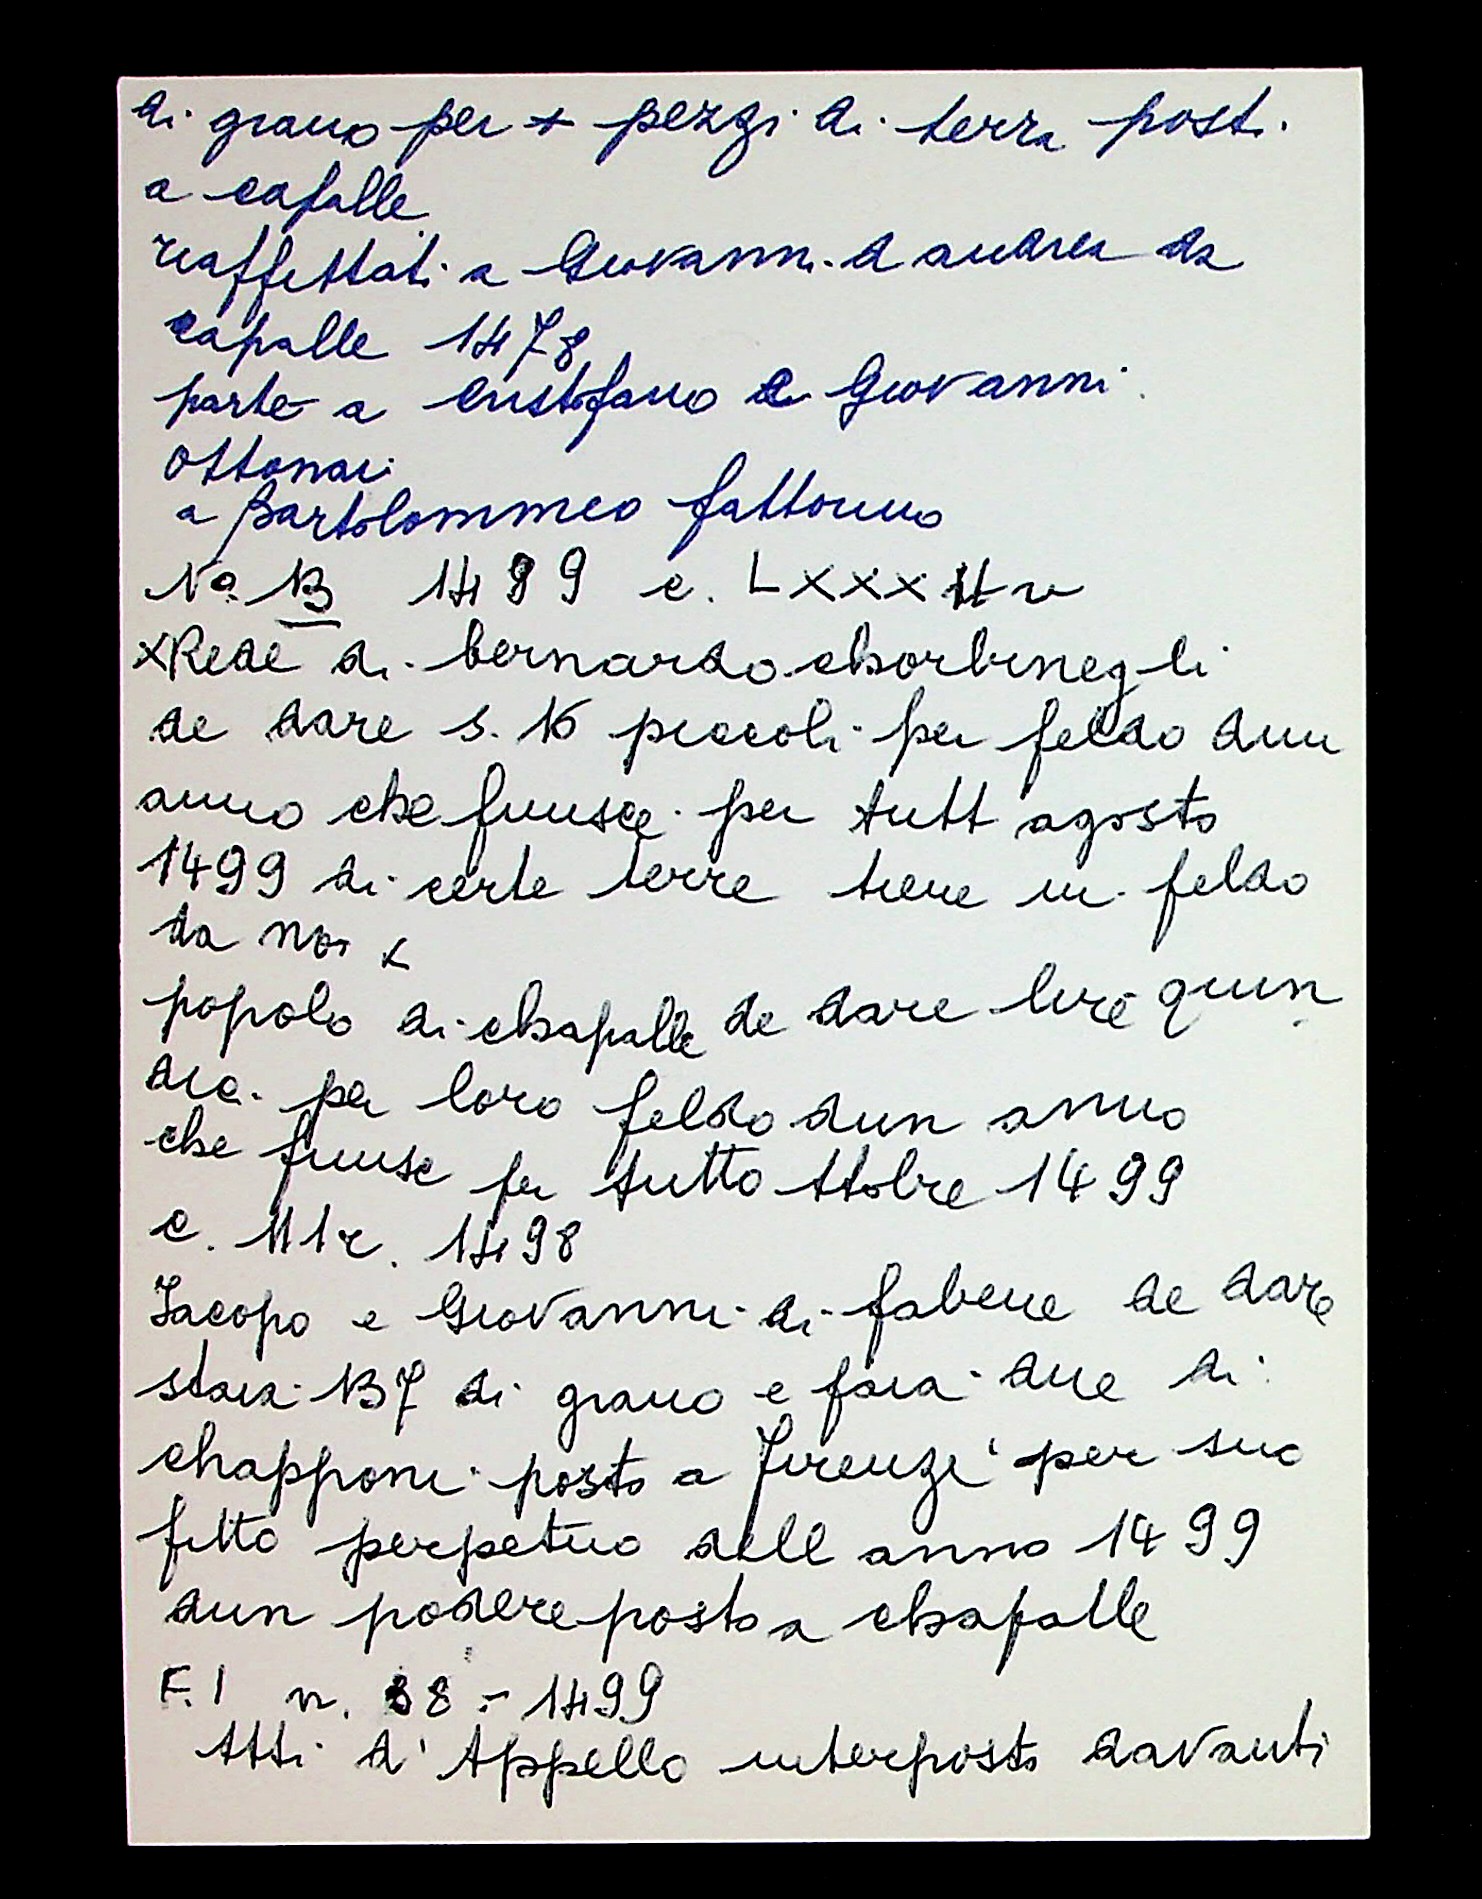 di grano per + pezzi di terra posti
a capalle
riaffittati a Giovanni d andrea da
capalle 1478
parte a Cristofano e Giovanni
Ottonai
a Bartolommeo fattorino
No. 13 1499 c. LXXXII v
xRede di bernardo chorbinegli
de dare s. 16 piccoli per feldo dun
anno che finisce per tutt agosto
1499 di certe terre tiene in feldo
da noi x
popolo di chapalle de dare lire quin
dic. per loro feldo dun anno
che finise per tutto ttobre 1499
c. 111r. 1498
Iacopo e Giovanni di fabene de dare
staia 137 di grano e paia due di
chapponi posto a Firenze per suo
fitto perpetuo dell anno 1499
dun podere posto a chapalle
F. I n. 88 - 1499
Atti d' Appello interposto davanti